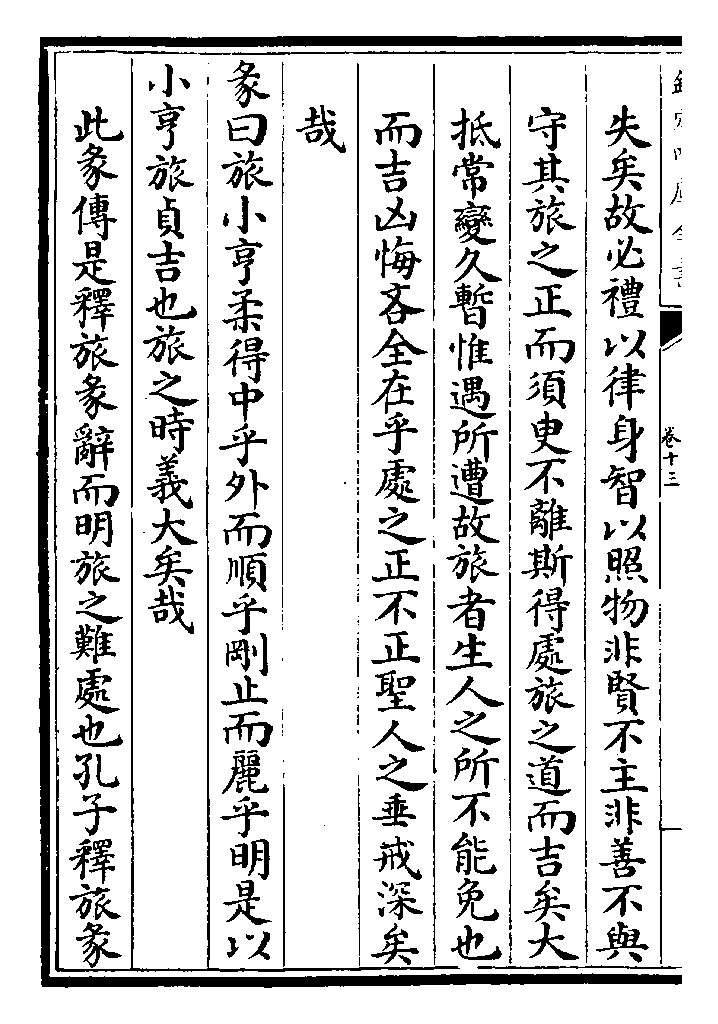 欽定四庫全書
卷十三
失矣故必禮以律身智以照物非賢不主非善不與
守其旅之正而須臾不離斯得處旅之道而吉矣大
抵常變久暫惟遇所遭故旅者生人之所不能免也
而吉凶悔吝全在乎處之正不正聖人之垂戒深矣
哉
彖曰旅小亨柔得中乎外而順乎剛止而麗乎明是以
小亨旅貞吉也旅之時義大矣哉
此彖傳是釋旅彖辭而明旅之難處也孔子釋旅彖